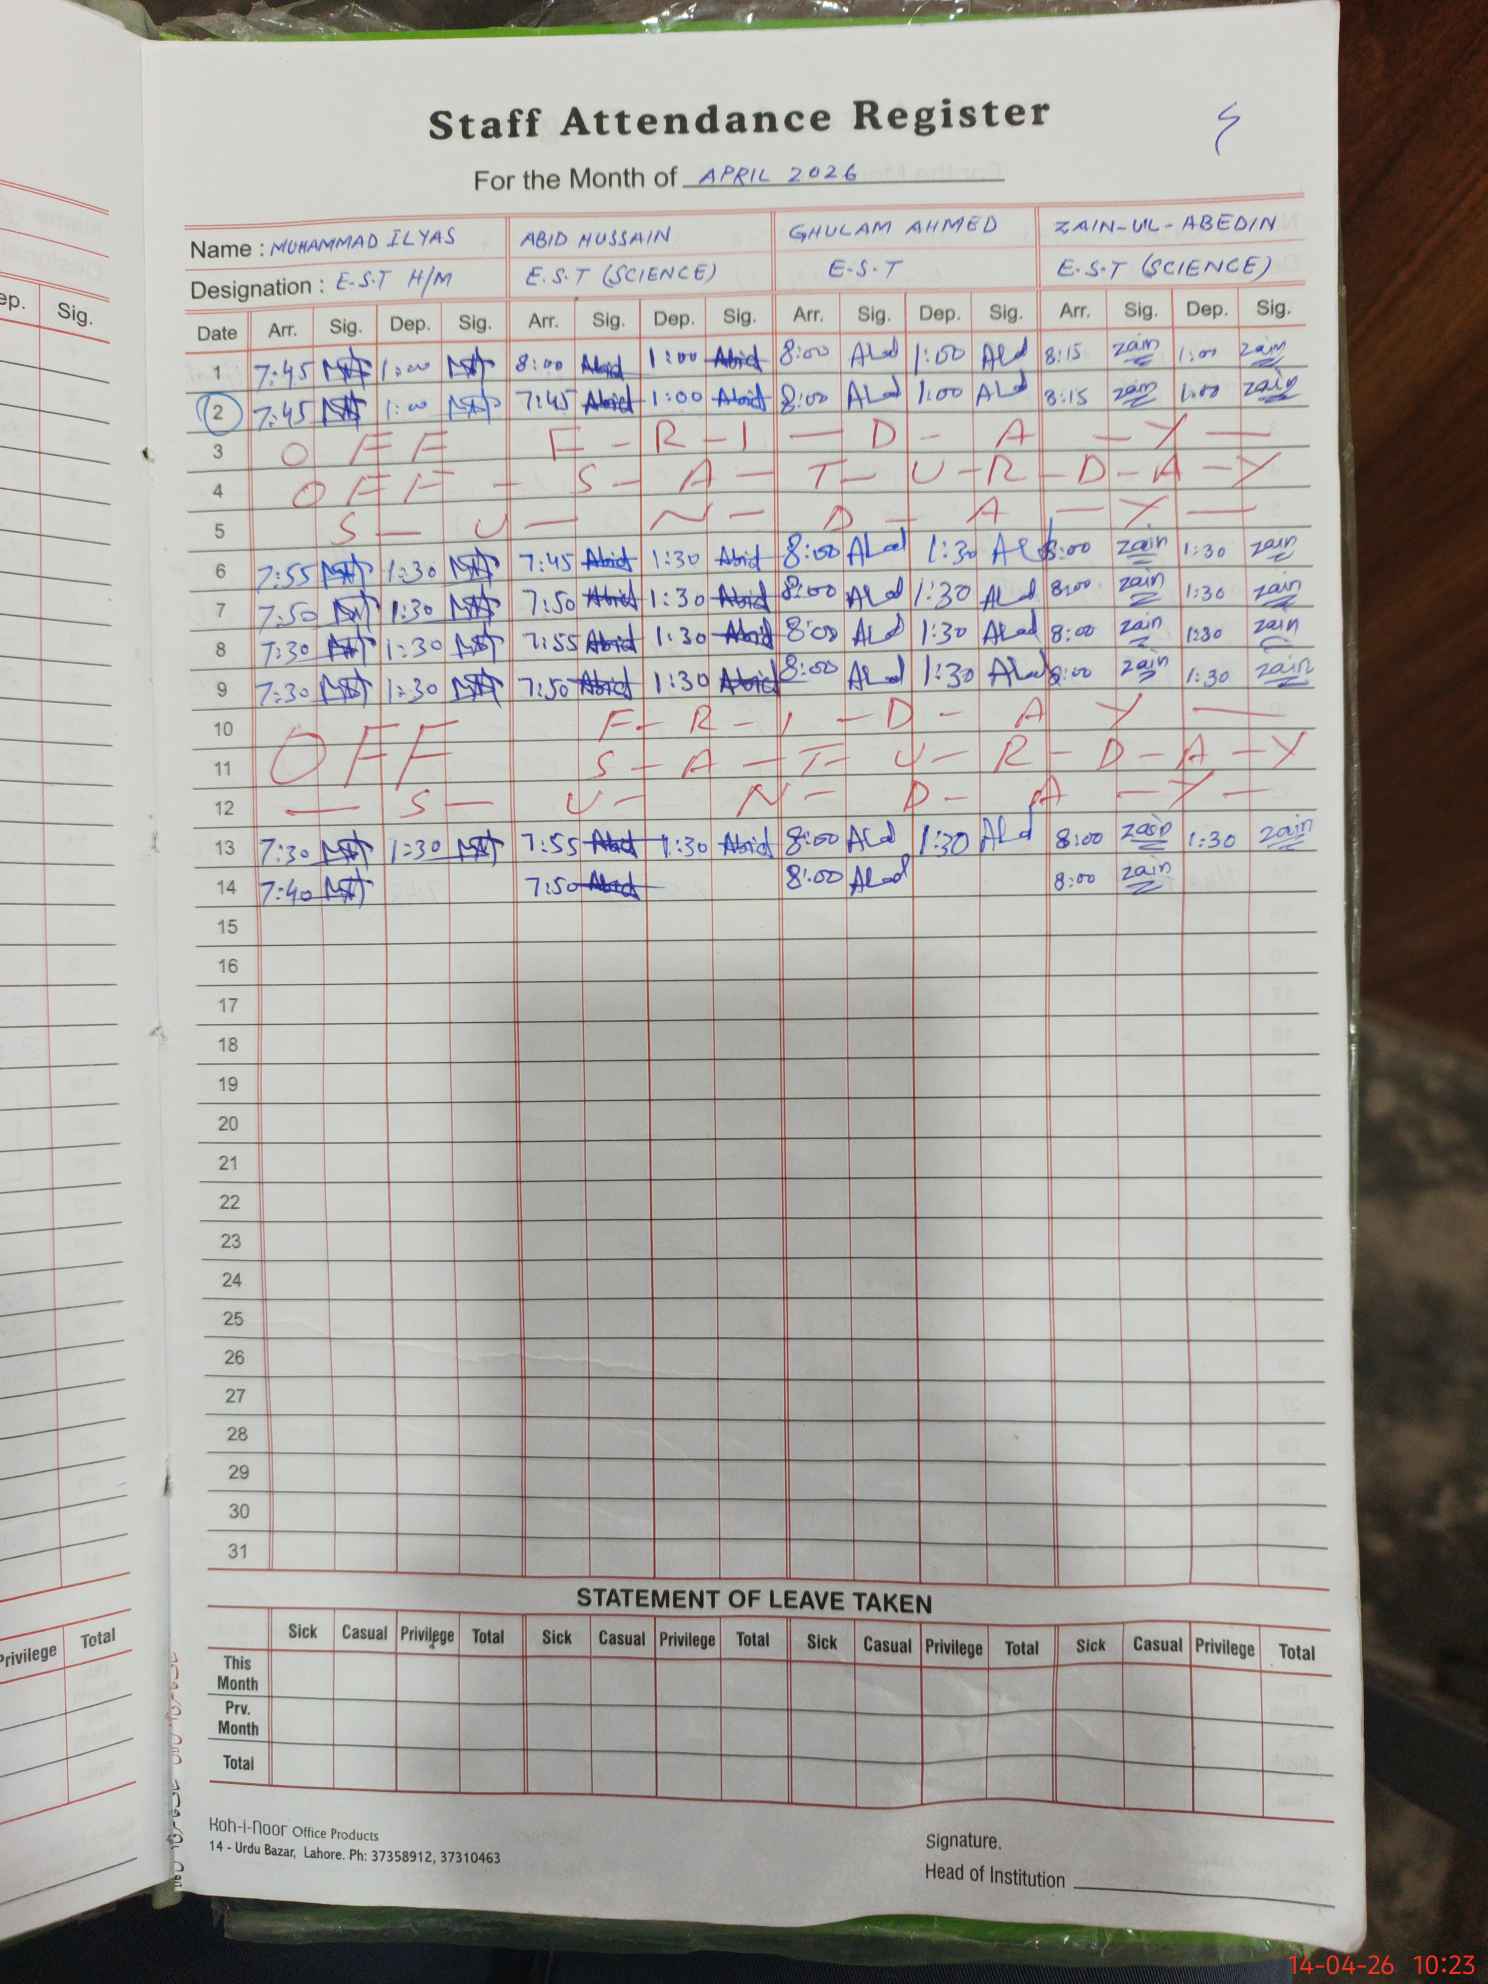 Staff Attendance Register
For the Month of APRIL 2026
Name : MUHAMMAD ILYAS ABID HUSSAIN GHULAM AHMED ZAIN-UL-ABEDIN
Designation : E.S.T H/M E.S.T (SCIENCE) E.S.T E.S.T (SCIENCE)
ep. Sig.
Date Arr. Sig. Dep. Sig. Arr. Sig. Dep. Sig. Arr. Sig. Dep. Sig. Arr. Sig. Dep. Sig.
1 7:45 1:00 8:00 Abid 1:00 Abid 8:00 1:00 8:15 zain 1:00 zain
2 7:45 1:00 7:45 Abid 1:00 Abid 8:00 1:00 8:15 zain 1:00 zain
3 OFF F-R-I-D-A-Y-
4 OFF - S-A-T-U-R-D-A-Y
5 S-U-N-D-A-Y-
6 7:55 1:30 7:45 Abid 1:30 Abid 8:00 1:30 8:00 zain 1:30 zain
7 7:50 1:30 7:50 Abid 1:30 Abid 8:00 1:30 8:00 zain 1:30 zain
8 7:30 1:30 7:55 Abid 1:30 Abid 8:00 1:30 8:00 zain 1:30 zain
9 7:30 1:30 7:50 Abid 1:30 Abid 8:00 1:30 8:00 zain 1:30 zain
10 OFF F-R-I-D-A Y-
11 S-A-T-U-R-D-A-Y
12 -S-U-N-D-A-Y-
13 7:30 1:30 7:55 Abid 1:30 Abid 8:00 1:30 8:00 zain 1:30 zain
14 7:40 7:50 Abid 8:00 8:00 zain
15
16
17
18
19
20
21
22
23
24
25
26
27
28
29
30
31
STATEMENT OF LEAVE TAKEN
Privilege Total
Sick Casual Privilege Total Sick Casual Privilege Total Sick Casual Privilege Total Sick Casual Privilege Total
This Month
Prv. Month
Total
Koh-i-noor Office Products
14 - Urdu Bazar, Lahore. Ph: 37358912, 37310463
Signature.
Head of Institution
14-04-26 10:23